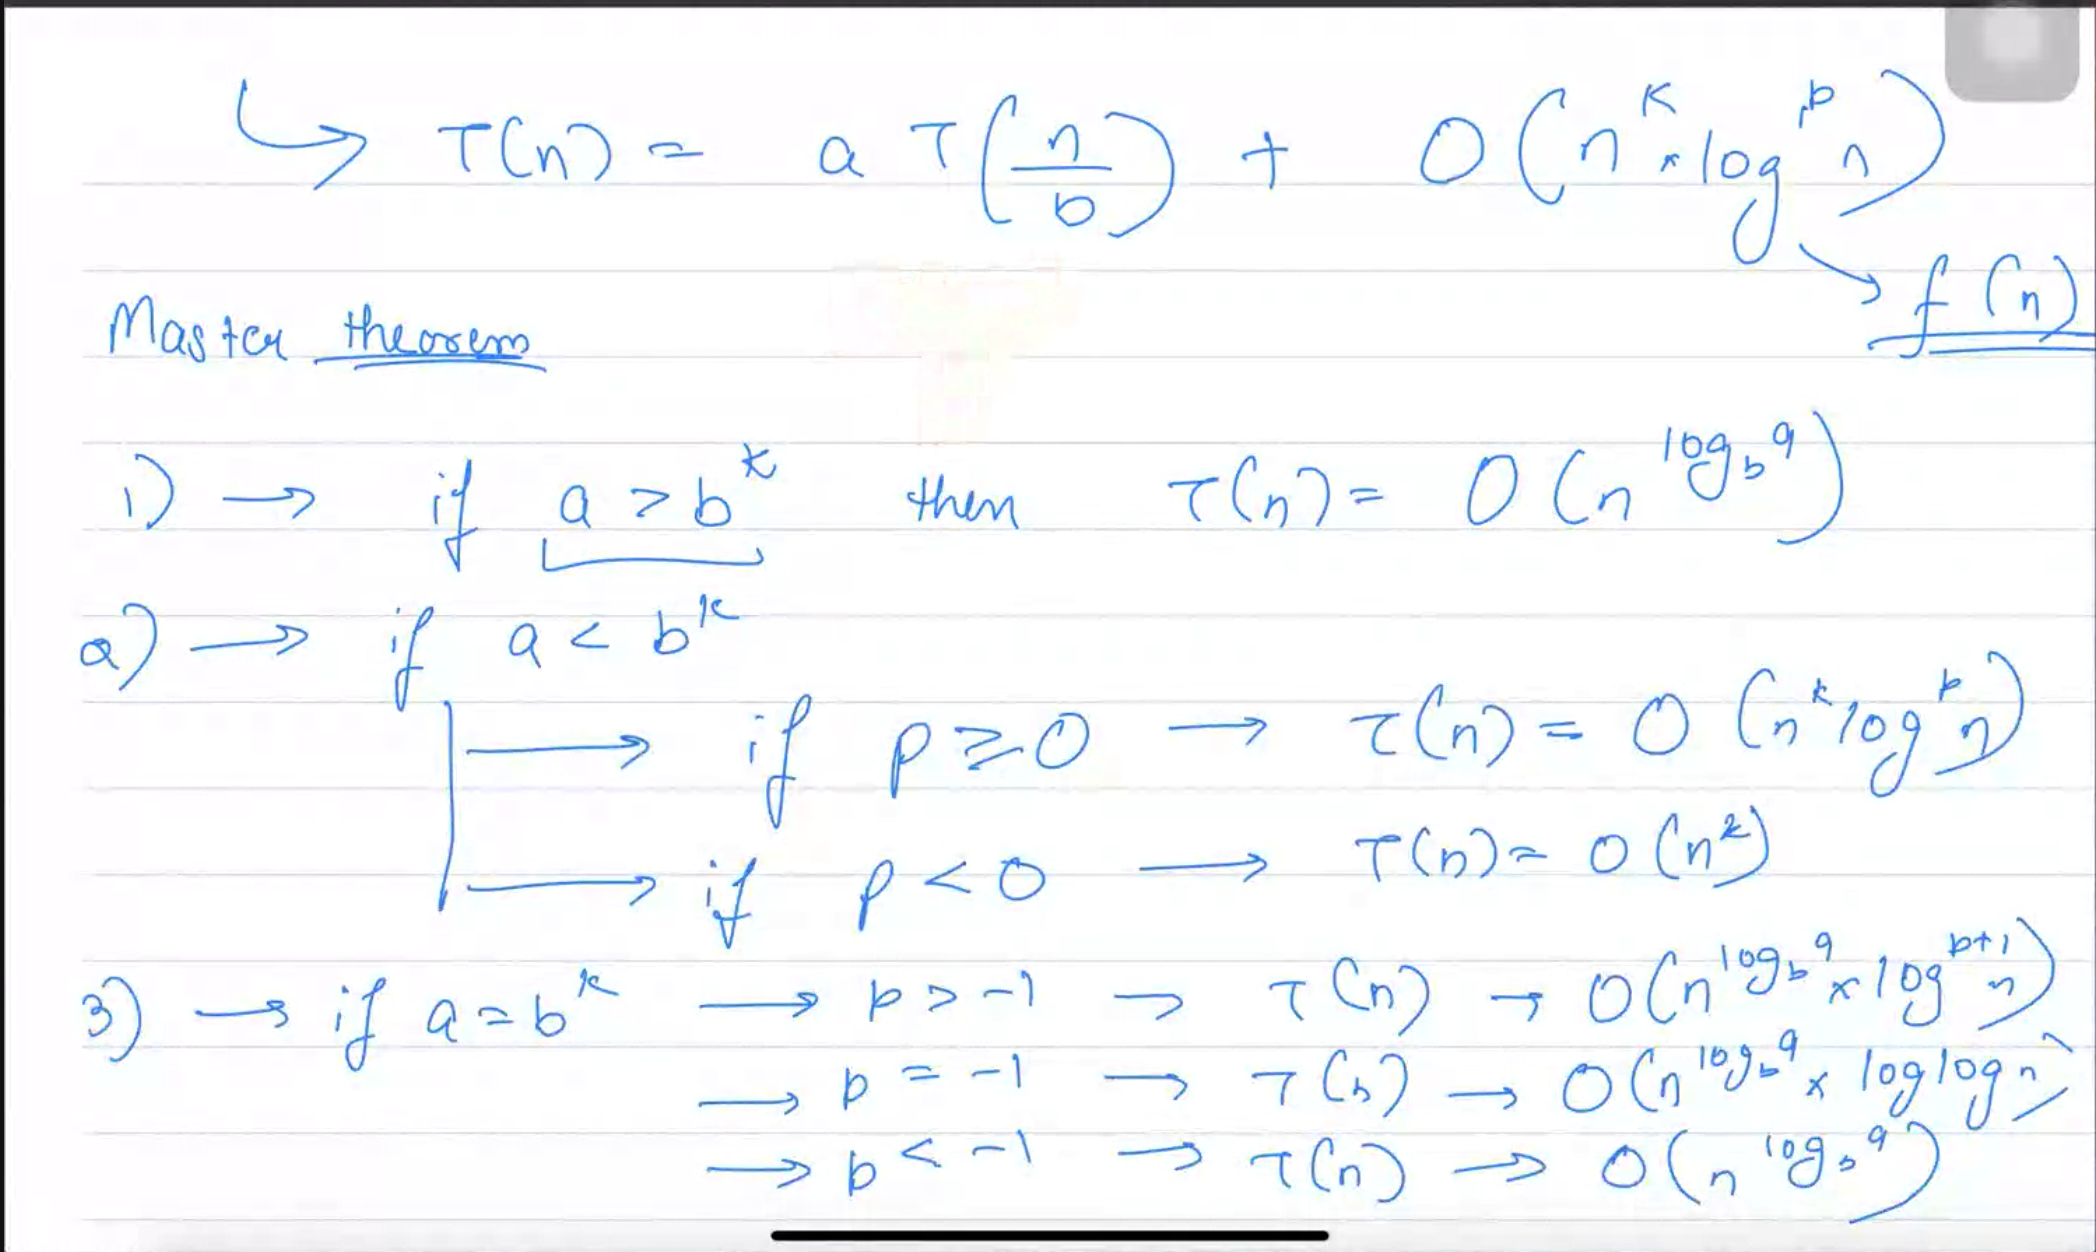 ↳ T(n) = a T(n/b) + O(n^k × log^p n)
→ f(n)
Master theorem
1) → if a > b^k then T(n) = O(n^log_b a)
2) → if a < b^k
→ if p ≥ 0 → T(n) = O(n^k log^p n)
→ if p < 0 → T(n) = O(n^k)
3) → if a = b^k → p > -1 → T(n) → O(n^log_b a × log^p+1 n)
→ p = -1 → T(n) → O(n^log_b a × log log n)
→ p < -1 → T(n) → O(n^log_b a)